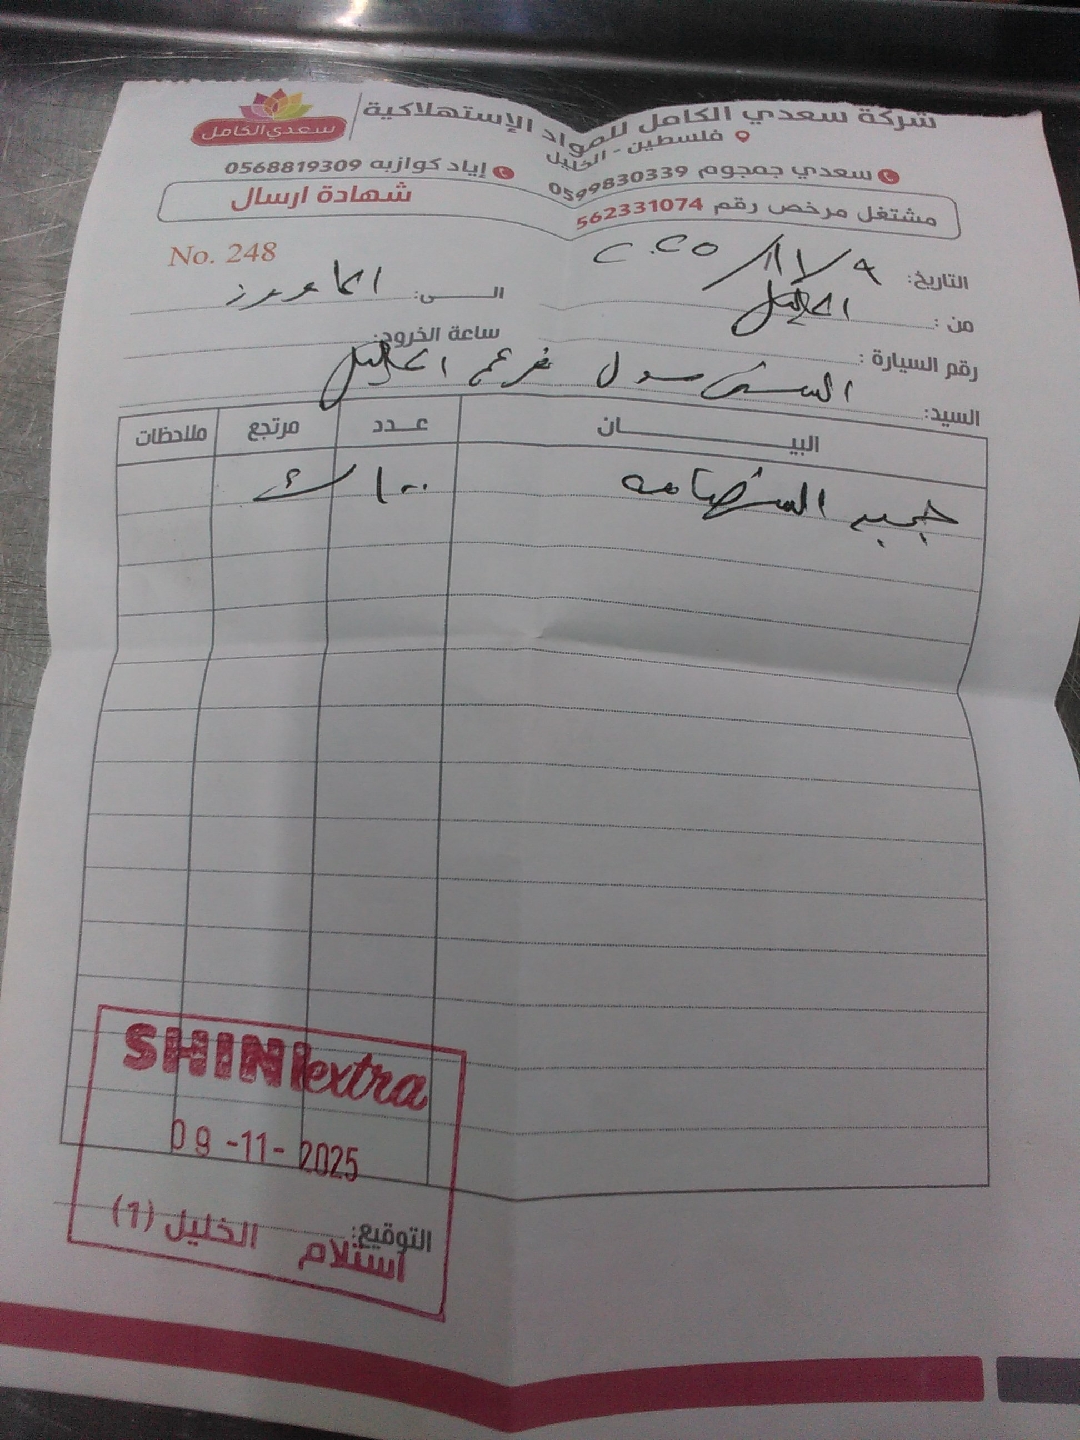 شركة سعدي الكامل للمواد الإستهلاكية
سعدي الكامل
فلسطين - الخليل
سعدي جمجوم 0599830339
إياد كوازبه 0568819309
مشتغل مرخص رقم 562331074
شهادة ارسال
No. 248
التاريخ: ٩/١١/٢٠٢٥
من: الخليل
الى:
رقم السيارة:
ساعة الخروج:
السيد: فرع الخليل
البيان عدد مرتجع ملاحظات
١٠٠ ك
SHINI extra
09-11-2025
التوقيع:
استلام الخليل (1)